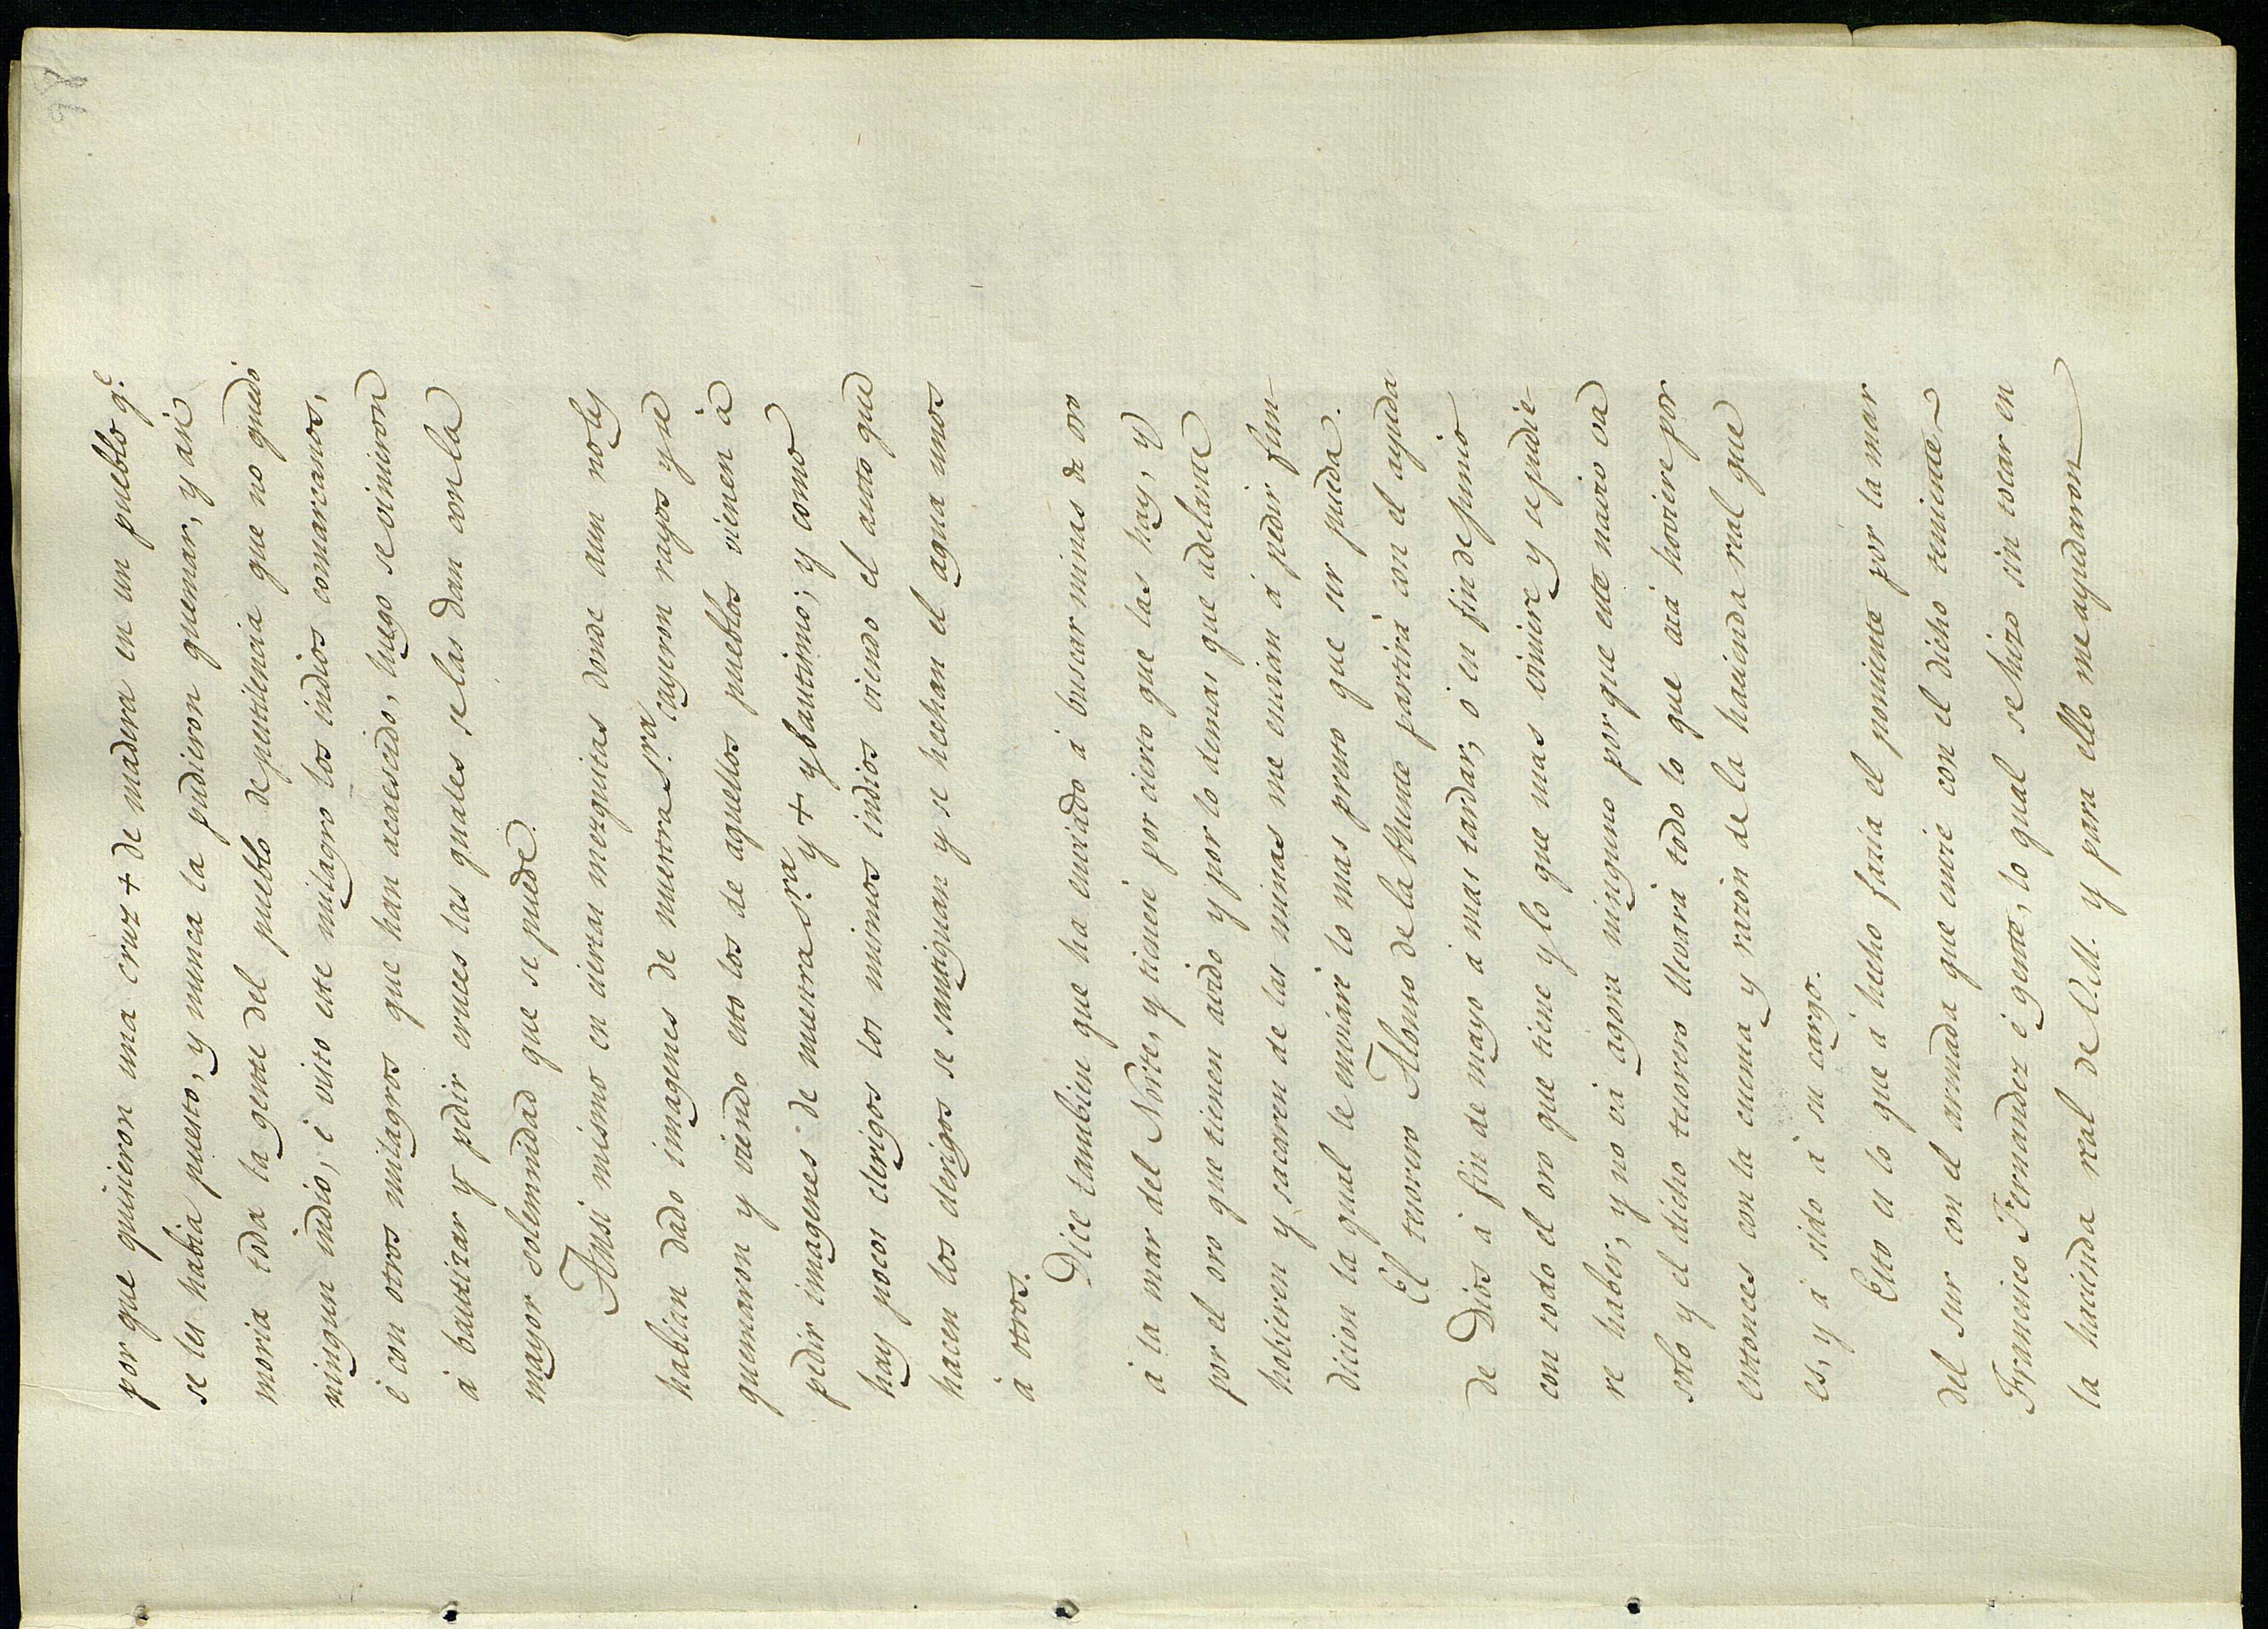 por que quisieron una cruz + de madera en un pueblo q.e
se les habia puesto, y nunca la pudieron quemar, y ansi
moria toda la gente del pueblo de pestilencia que no quedó
ningun indio, é visto este milagro los indios comarcanos,
é con otros milagros que han acaescido, luego se vinieron
á bautizar y pedir cruces las quales se las dan con la
mayor solemnidad que se puede.
Ansi mismo en ciertas mezquitas donde aun no les
habian dado imagenes de nuestra S.ra cayeron rayos y se
quemaron y viendo esto los de aquellos pueblos vienen á
pedir imagenes de nuestra S.ra y + y bautismo; y como
hay pocos clerigos los mismos indios viendo el auto que
hacen los clerigos se santiguan y se hechan el agua unos
á otros.
Dice tambien que ha enviado á buscar minas de oro
á la mar del Norte, y tienese por cierto que las hay, y
por el oro que tienen avido y por lo demas que adelante
hobieren y sacaren de las minas me envian á pedir fun-
dicion la qual le enviaré lo mas presto que ser pueda.
El tesorero Alonso de la Fuente partirá con el ayuda
de Dios á fin de mayo á mas tardar, ó en fin de junio
con todo el oro que tiene y lo que mas viniere y se pudie-
re haber, y no vá agora ninguno por que este navio va
solo y el dicho tesorero llevará todo lo que acá hoviere por
entonces con la cuenta y razon de la hacienda real que
es, y á sido á su cargo.
Esto es lo que á hecho facia el poniente por la mar
del sur con el armada que envie con el dicho teniente
Francisco Fernandez é gente, lo qual se hizo sin tocar en
la hacienda real de V.M. y para ello me ayudaron